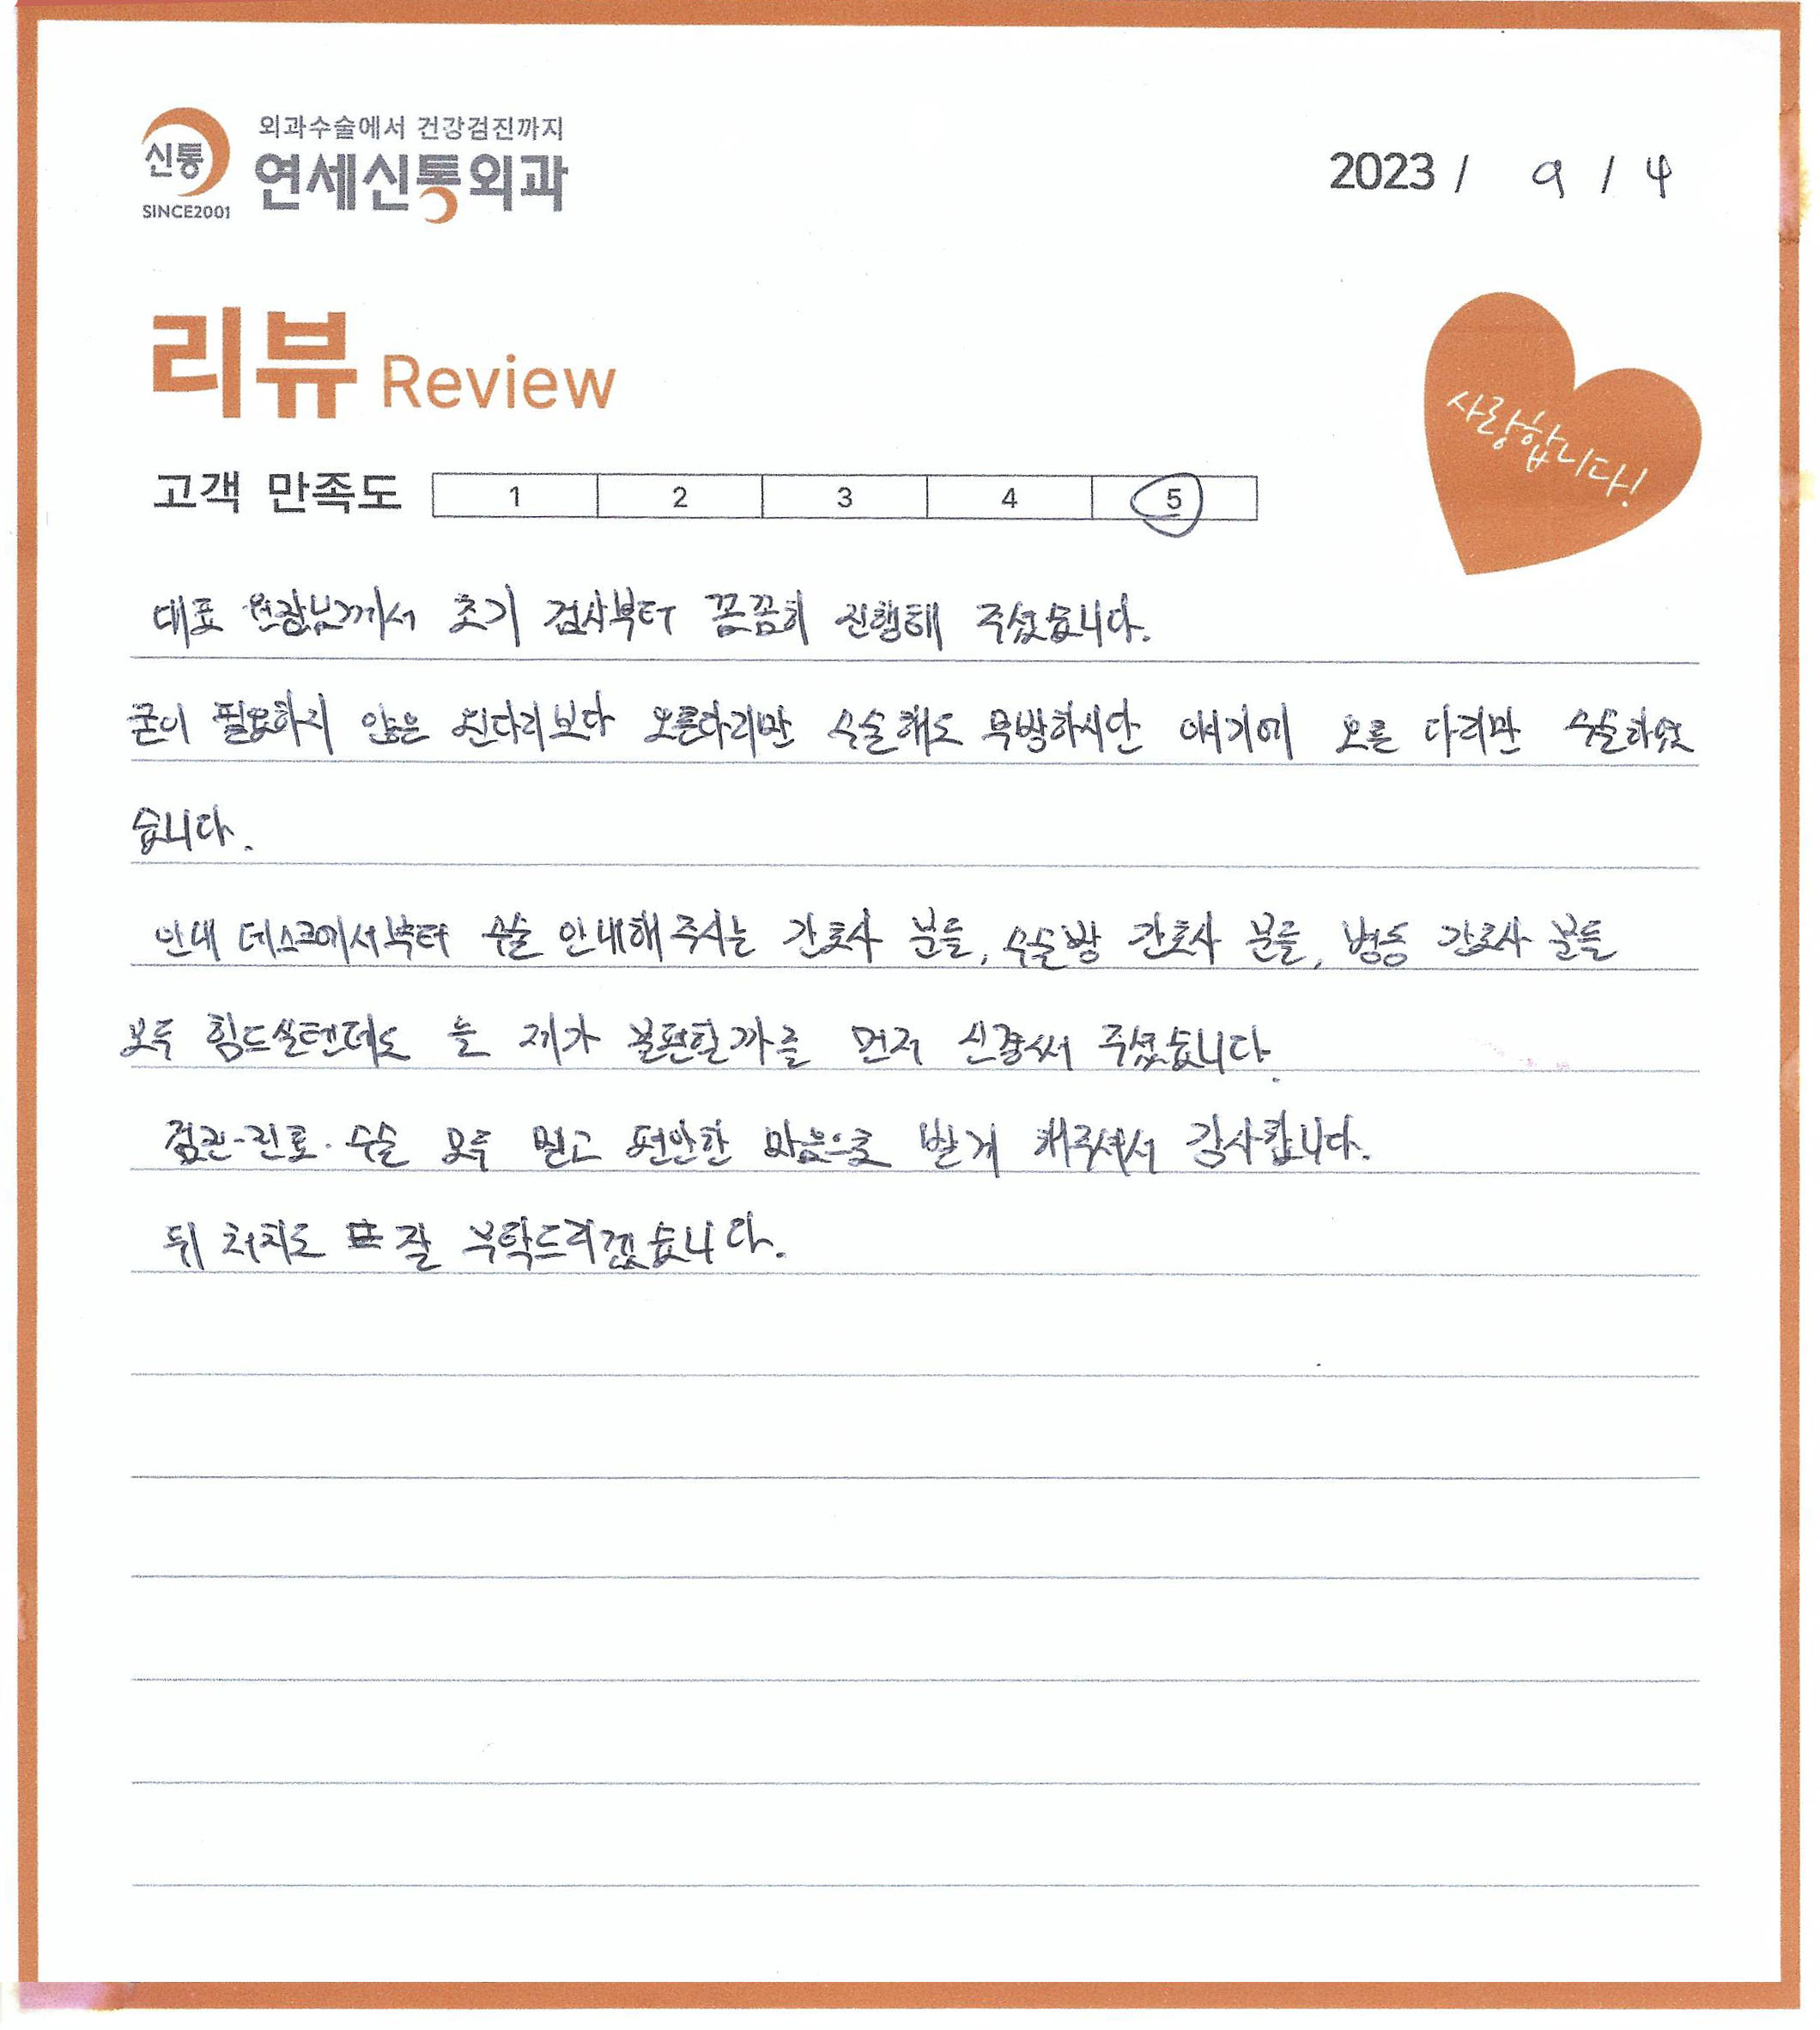 신통
SINCE2001
외과수술에서 건강검진까지
연세신통외과
2023 / 9 / 4
리뷰 Review
사랑합니다!
고객 만족도 1 2 3 4 5
대표 원장님께서 초기 검사부터 꼼꼼히 진행해 주셨습니다.
굳이 필요하지 않은 왼다리보다 오른다리만 수술해도 무방하시단 얘기에 오른 다리만 수술하였
습니다.
안내 데스크에서부터 수술 안내해주시는 간호사 분들, 수술방 간호사 분들, 병동 간호사 분들
모두 힘드실텐데도 늘 제가 불편할까를 먼저 신경써 주셨습니다.
진료·수술 모두 믿고 편안한 마음으로 받게 해주셔서 감사합니다.
뒤 처치도 잘 부탁드리겠습니다.